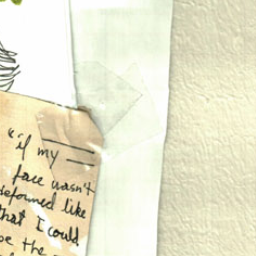 "if my —
face wasn't
deformed like
that I could
be the